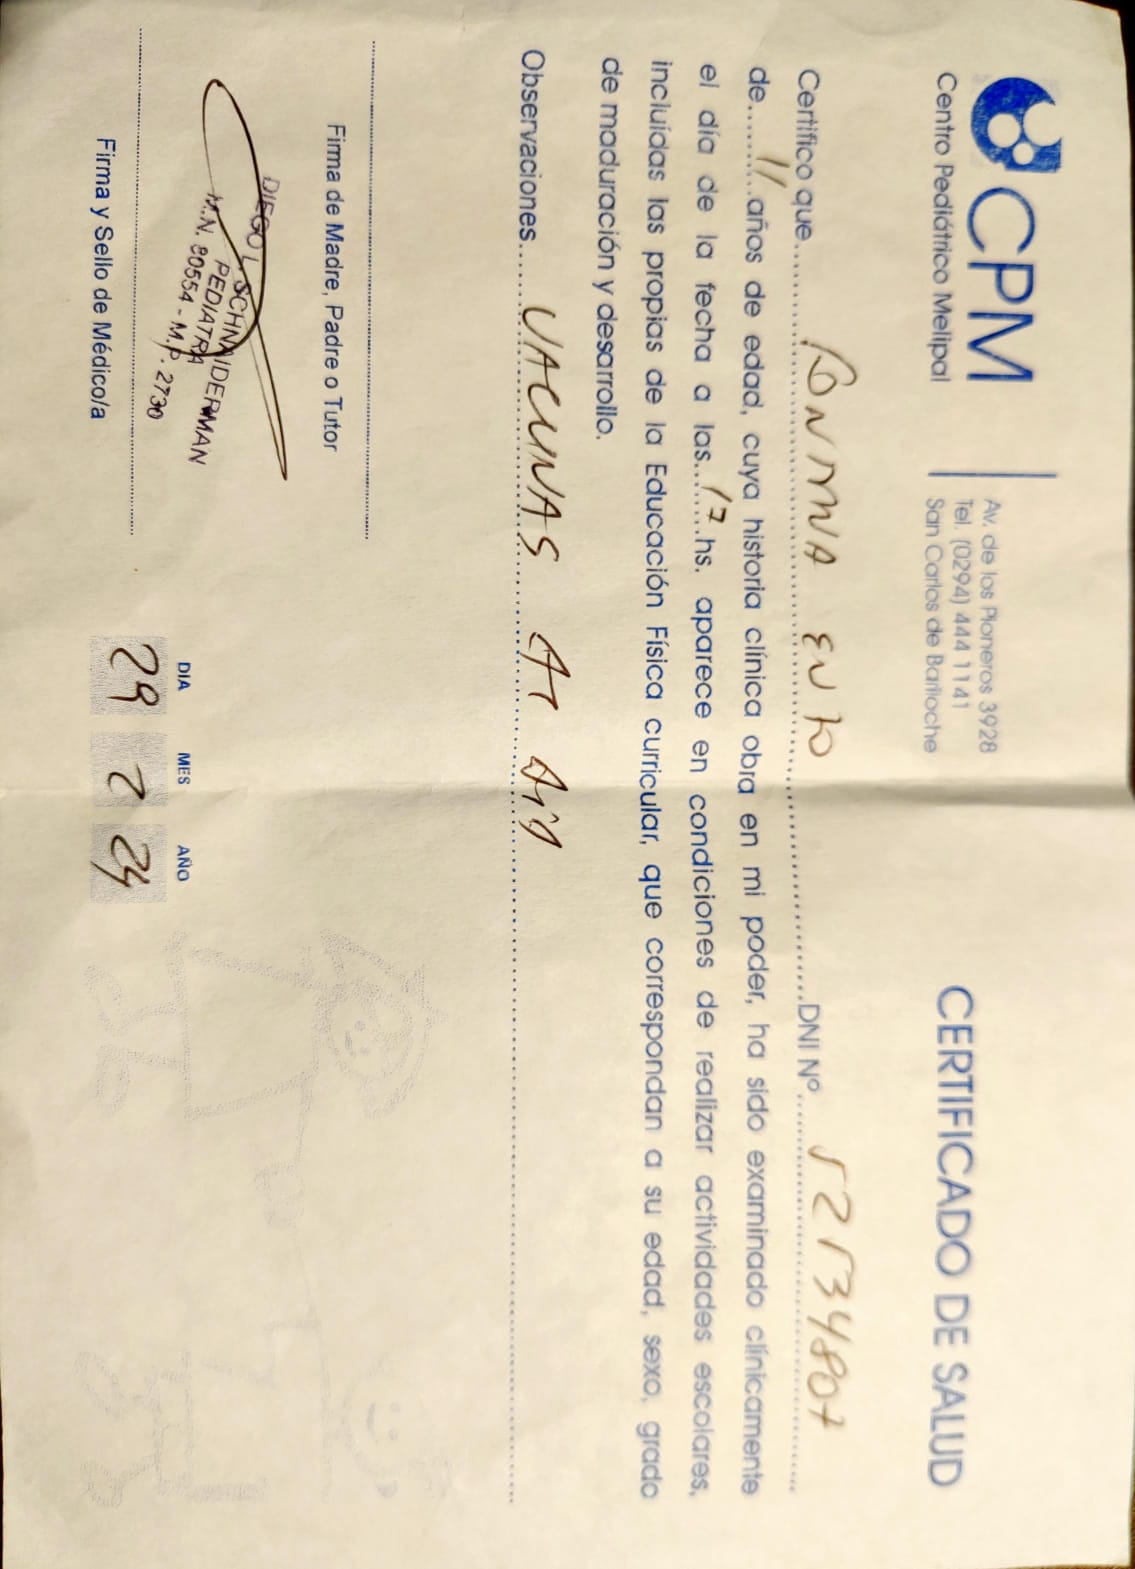 CPM
Centro Pediátrico Melipal
Av. de los Pioneros 3928
Tel. (0294) 444 1141
San Carlos de Bariloche
CERTIFICADO DE SALUD
Certifico que DNI Nº 52134807
de 11 años de edad, cuya historia clínica obra en mi poder, ha sido examinado clínicamente
el día de la fecha a las 17 hs. aparece en condiciones de realizar actividades escolares,
incluídas las propias de la Educación Física curricular, que correspondan a su edad, sexo, grado
de maduración y desarrollo.
Observaciones. VACUNAS AL DIA
Firma de Madre, Padre o Tutor
DIEGO L SCHNAIDERMAN
PEDIATRA
M.N. 80554 - M.P. 2730
Firma y Sello de Médico/a
DIA MES AÑO
29 2 24